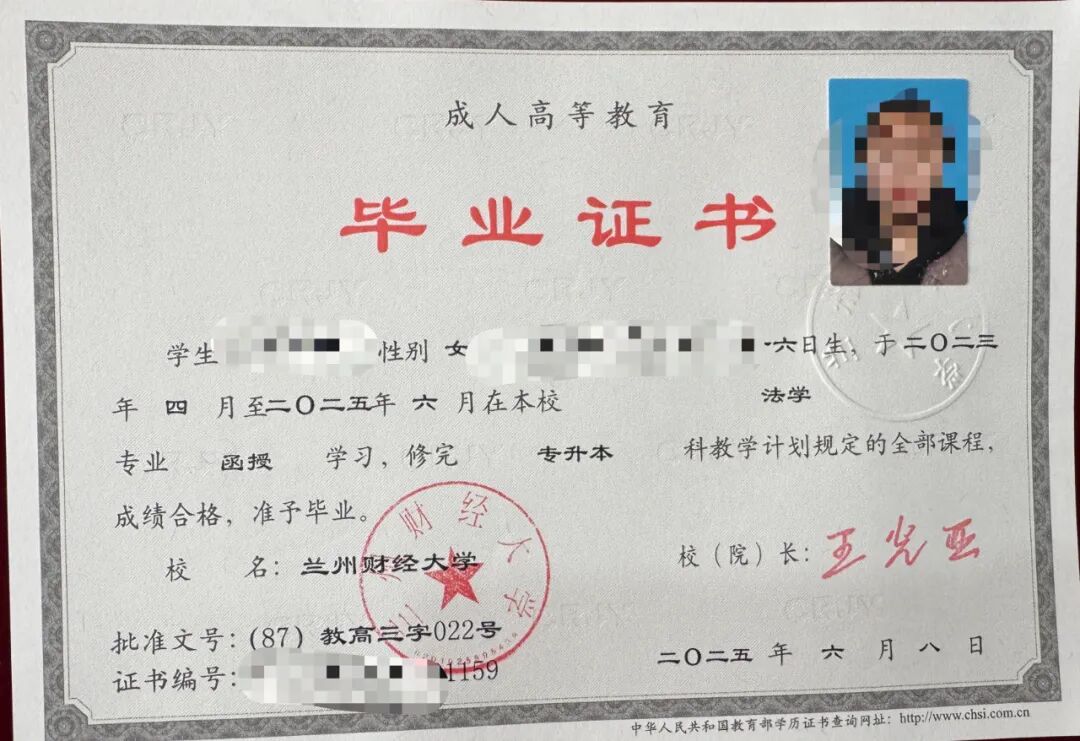 成人高等教育
毕业证书
学生 性别 女 六日生，于二〇二三
年 四 月至二〇二五年 六 月在本校 法学
专业 函授 学习，修完 专升本 科教学计划规定的全部课程，
成绩合格，准予毕业。
校 名：兰州财经大学
校（院）长：王光亚
批准文号：(87) 教高三字022号
二〇二五 年 六 月 八 日
证书编号： 1159
中华人民共和国教育部学历证书查询网址：http://www.chsi.com.cn
财经大学